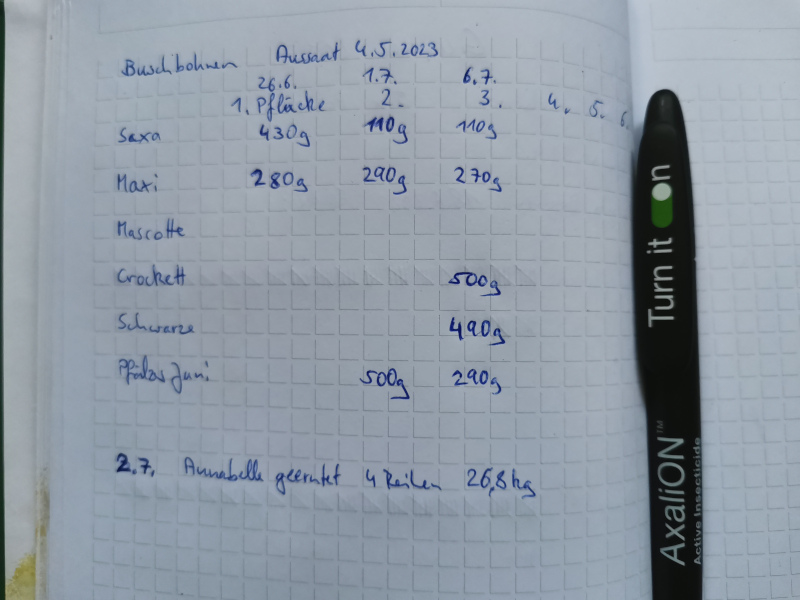 Buschbohnen Aussaat 4.5.2023
26.6. 1.7. 6.7.
1. Pflücke 2. 3. 4. 5. 6.
Saxa 430g 110g 110g
Maxi 280g 290g 270g
Mascotte
Crockett 500g
Schwarze 490g
Juni 500g 290g
2.7. Annabelle geerntet 4 Reihen 26,8kg
Turn it on
AxaliON™
Active Insecticide